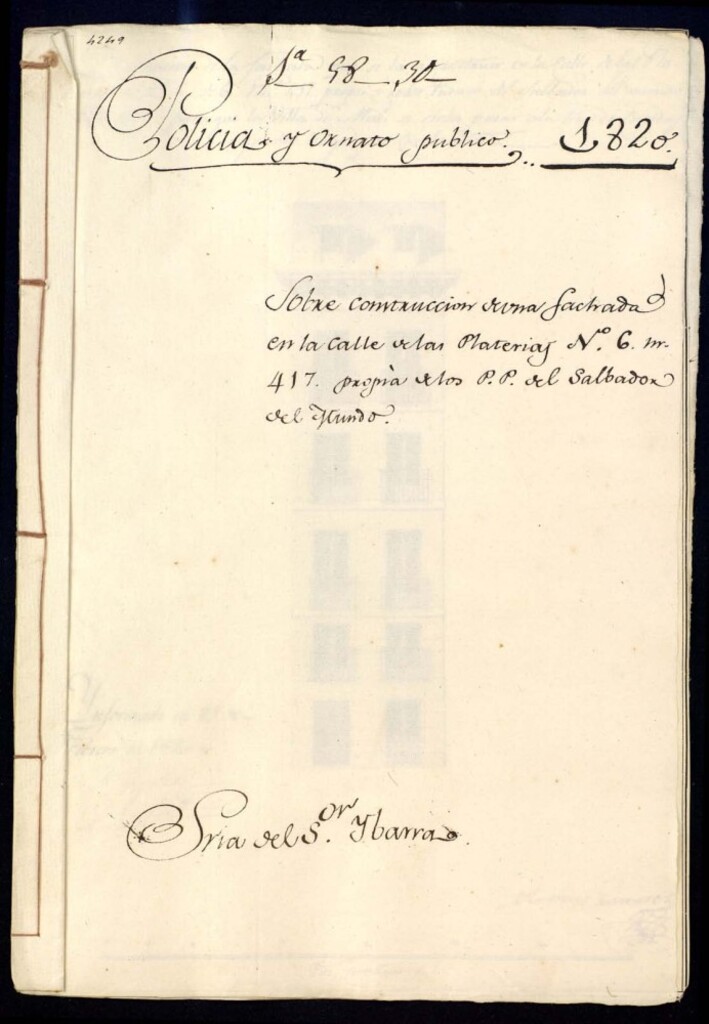 4249
Sª 58 30
Policia y ornato publico. 1820.
Sobre construccion de una fachada
en la Calle de las Platerias Nº. 6. m-
417. propia de los P.P. del Salbador
del Mundo.
Sria del S.or Ybarra.